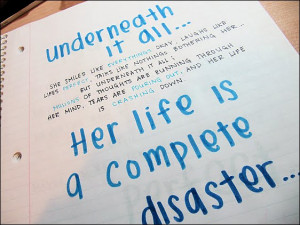 underneath
it all...
SHE SMILES LIKE EVERYTHINGS OKAY, LAUGHS LIKE
LIFES PERFECT, TALKS LIKE NOTHINGS BOTHERING HER...
BUT UNDERNEATH IT ALL;
MILLIONS OF THOUGHTS ARE RUNNING THROUGH
HER MIND, TEARS ARE POURING OUT, AND HER LIFE
IS CRASHING DOWN.
Her life is
a complete
disaster...